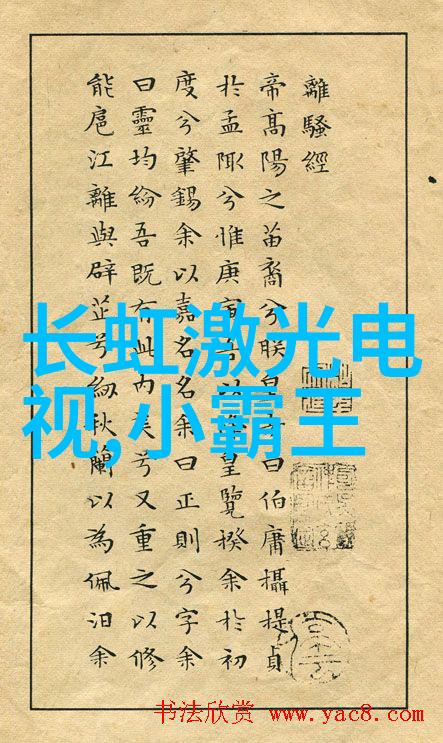 離騷經
帝高陽之苗裔兮朕皇曰伯庸攝提貞
於孟陬兮惟庚寅吾以皇覽揆余於初
度兮肇錫余以嘉名名余曰正則兮字余
曰靈均紛吾既有此內美兮又重之以修
能扈江離與辟芷兮紉秋蘭以為佩汨余
长虹激光电
视,小霸王
书法欣赏 www.yac8.com